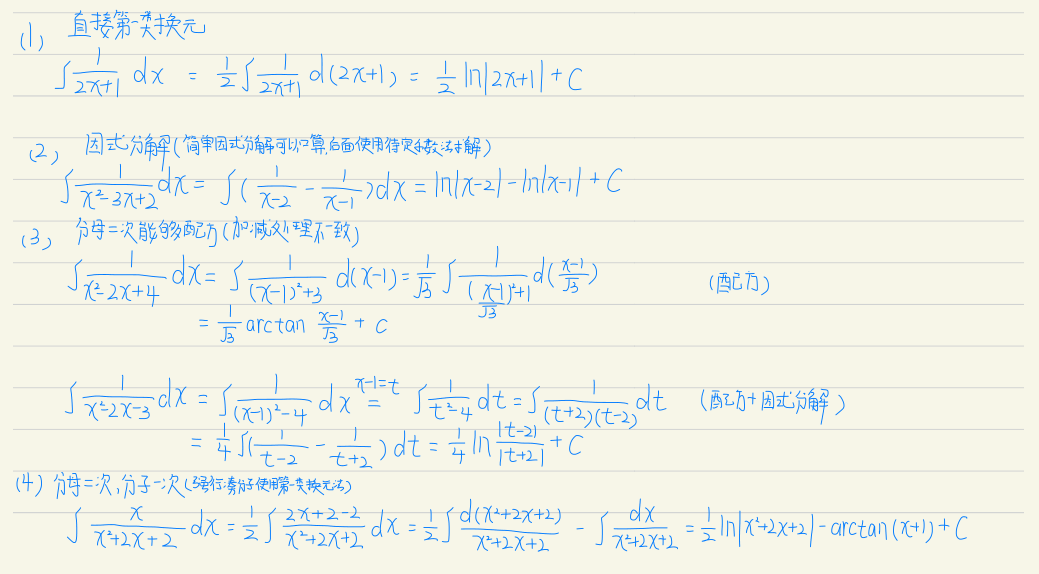 (1) 直接第一类换元
∫ 1/(2x+1) dx = 1/2 ∫ 1/(2x+1) d(2x+1) = 1/2 ln|2x+1| + C
(2) 因式分解(简单因式分解可以口算,后面使用待定系数法拆解)
∫ 1/(x²-3x+2) dx = ∫ ( 1/(x-2) - 1/(x-1) ) dx = ln|x-2| - ln|x-1| + C
(3) 分母二次能够配方(加减处理不一致)
∫ 1/(x²-2x+4) dx = ∫ 1/((x-1)²+3) d(x-1) = 1/√3 ∫ 1/(((x-1)/√3)²+1) d((x-1)/√3) (配方)
= 1/√3 arctan (x-1)/√3 + C
∫ 1/(x²-2x-3) dx = ∫ 1/((x-1)²-4) dx x-1=t = ∫ 1/(t²-4) dt = ∫ 1/((t+2)(t-2)) dt (配方+因式分解)
= 1/4 ∫( 1/(t-2) - 1/(t+2) ) dt = 1/4 ln |t-2|/|t+2| + C
(4) 分母二次,分子一次(强行凑分子使用第一类换元法)
∫ x/(x²+2x+2) dx = 1/2 ∫ (2x+2-2)/(x²+2x+2) dx = 1/2 ∫ d(x²+2x+2)/(x²+2x+2) - ∫ dx/(x²+2x+2) = 1/2 ln|x²+2x+2| - arctan(x+1) + C